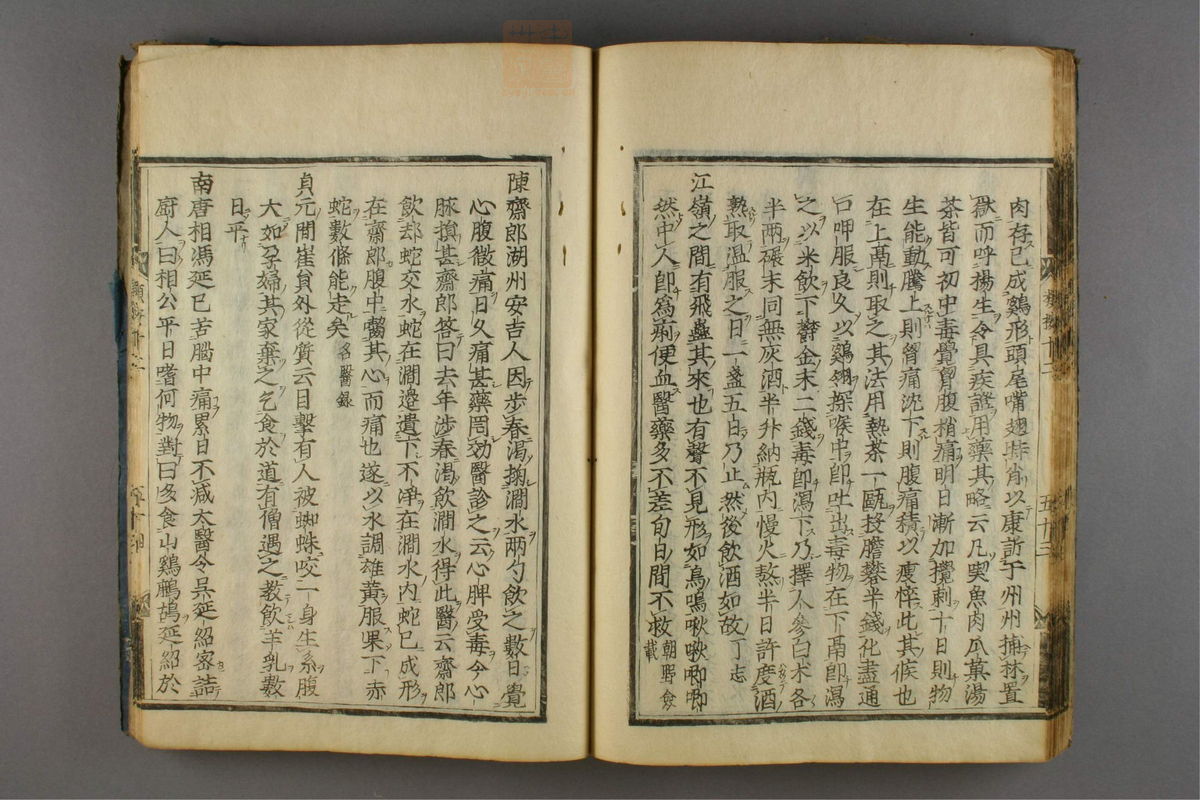 肉存已成鷄形頭尾嘴翅皆肖以康訴于州州捕林置
獄而呼揚生令具疾證用藥其略云凡喫魚肉瓜菓湯
茶皆可初中毒覺胷腹稍痛明日漸加攪刺十日則物
生能動騰上則胷痛沈下則腹痛積以瘦悴此其候也
在上鬲則取之其法用熱茶一甌投膽礬半錢化盡通
口呷服良久以鷄翎探喉中即吐出毒物在下鬲即瀉
之以米飲下欝金末二錢毒即瀉下乃擇人參白朮各
半兩碾末同無灰酒半升納瓶内慢火熬半日許度酒
熟取温服之日一盞五日乃止然後飲酒如故丁志
江嶺之間有飛蠱其來也有聲不見形如鳥鳴啾啾唧唧
然中人即爲痢便血醫藥多不差旬日間不救朝野僉載
五十三
陳齋郎湖州安吉人因步春渇掬澗水兩勺飲之數日覺
心腹微痛日久痛甚藥罔効醫診之云心脾受毒今心
脉損甚齋郎答曰去年渉春渇飲澗水得此醫云齋郎
飲却蛇交水蛇在澗邉遺下不浄在澗水内蛇已成形
在齋郎腹中嚙其心而痛也遂以水調雄黄服果下赤
蛇數條能走矣名醫録
貞元間崔貟外從質云目擊有人被蜘蛛咬一身生糸腹
大如孕婦其家棄之乞食於道有僧遇之教飲羊乳數
日平
南唐相馮延已苦腦中痛累日不减太醫令吳延紹密詰
厨人曰相公平日嗜何物對曰多食山鷄鷓鴣延紹於